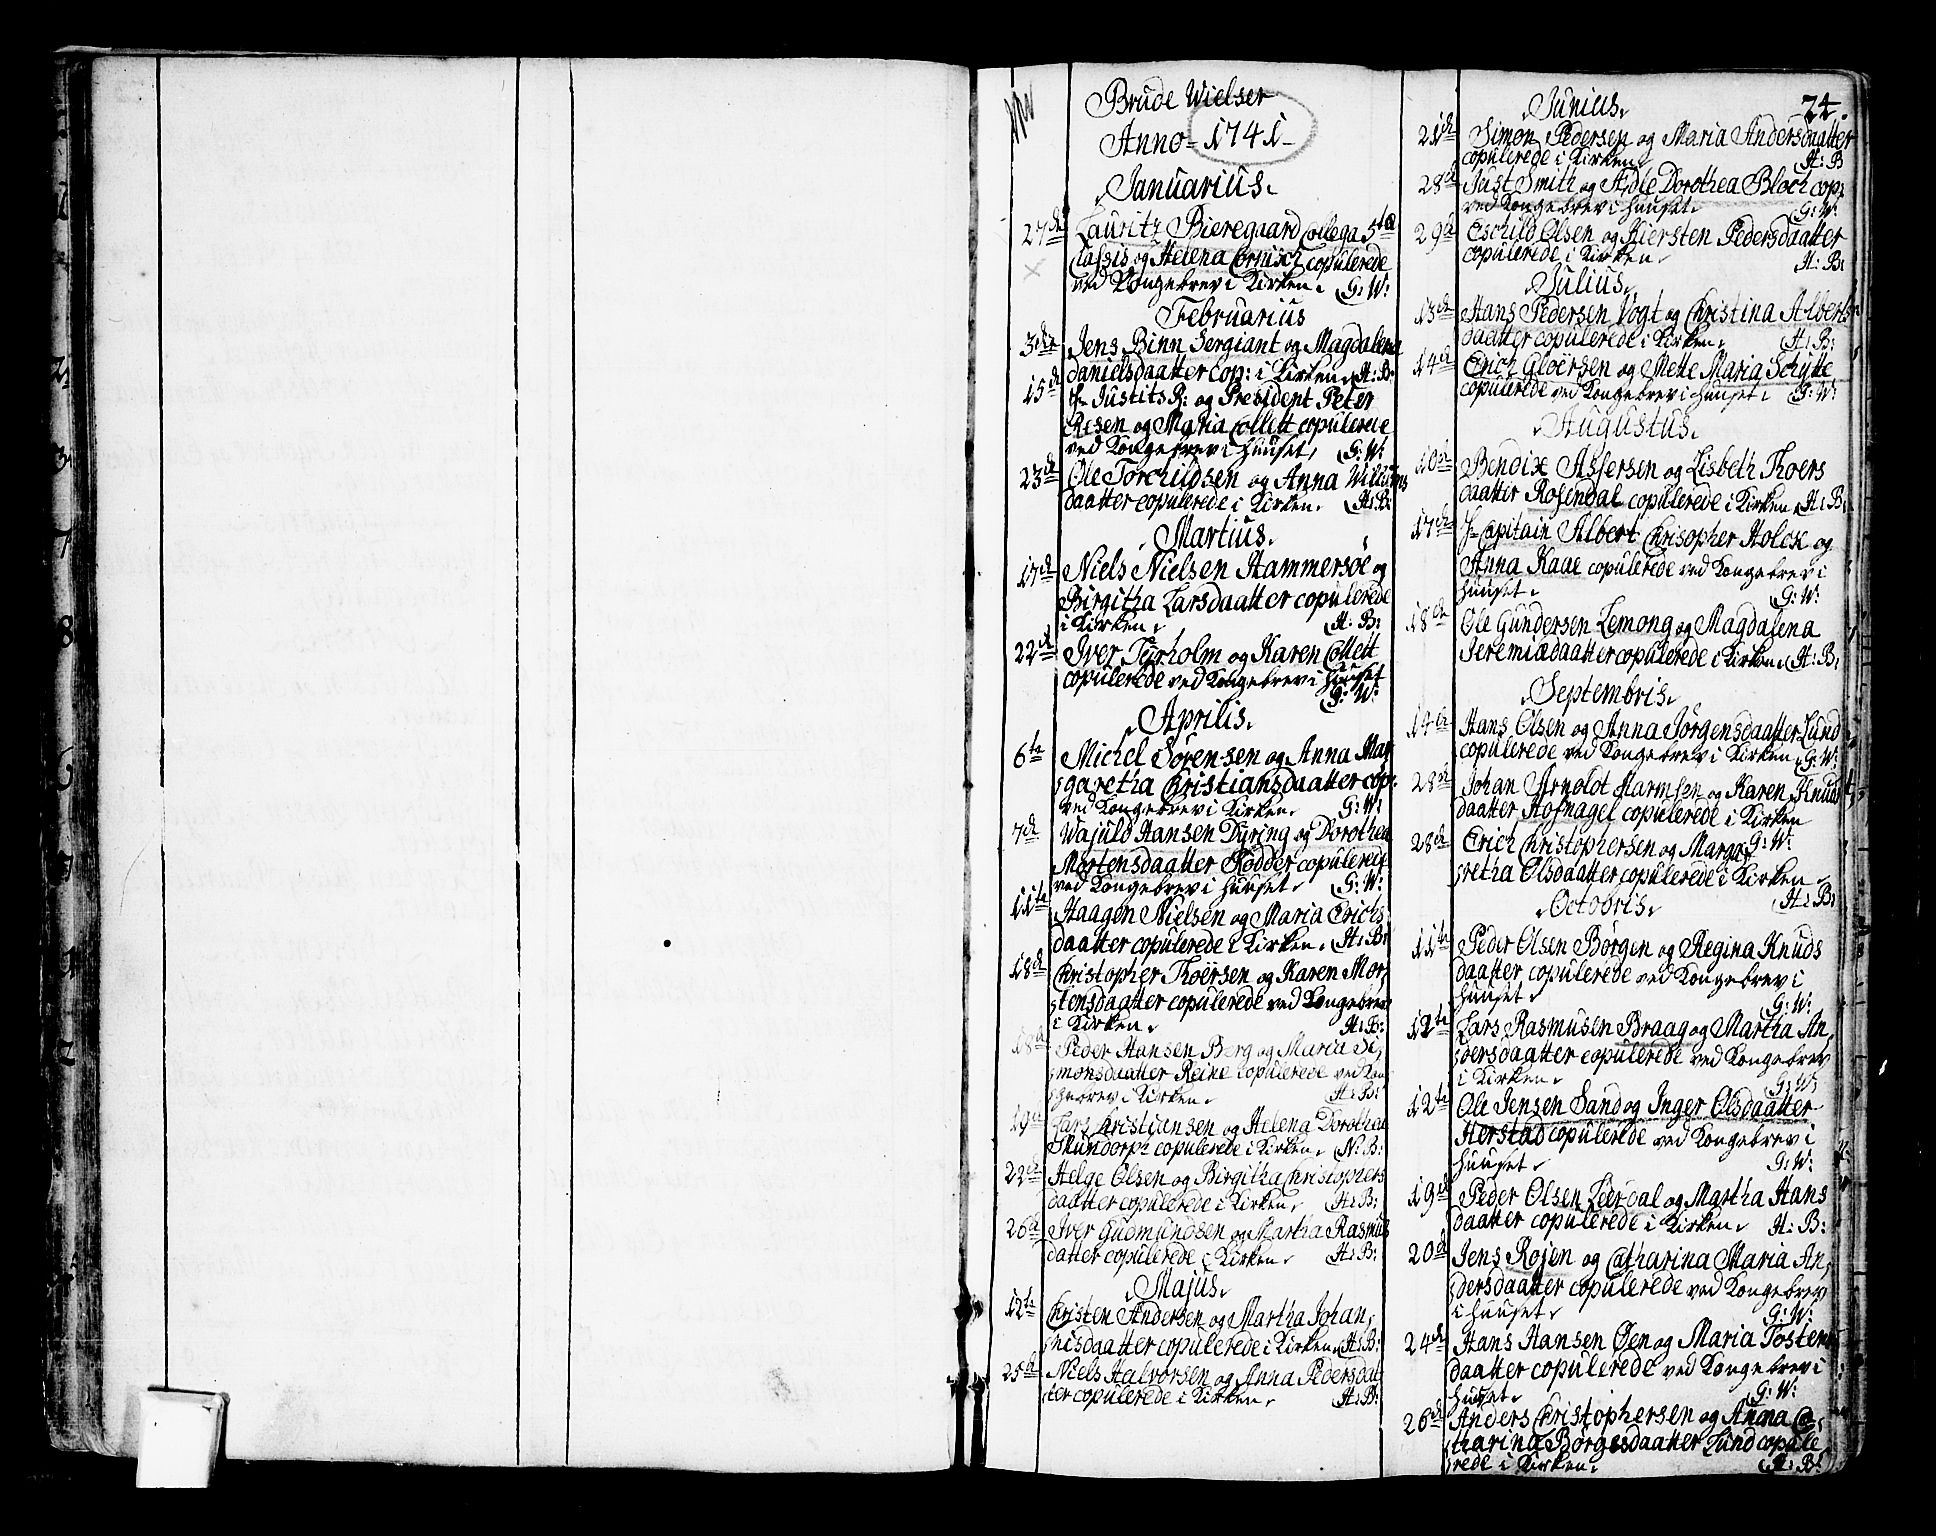 Brude Wielser
Anno 1741
Januarius.
27de Lauritz Bieregaard Collega 5te
Classis og Helena Cornisch copulerede
ved Kongebrev i Kirken. G: W:
Februarius
3die Jens Binn Sergiant og Magdalena
danielsdaatter cop: i Kirken. H: B:
15de Hr Justits R: og President Peter
Resen og Maria Collett copulerede
ved Kongebrev i Huuset, G: W:
23de Ole Torchildsen og Anna Willums
daatter copulerede i Kirken. H: B:
Martius.
17de Niels Nielsen Hammersøe og
Birgitha Larsdaatter copulerede
i Kirken. H: B:
22de Iver Tyrholm og Karen Collett
copulerede ved Kongebrev i Huuset
G: W:
Aprilis.
6te Michel Sørensen og Anna Mar
garetha Christiansdaatter cop:
ved Kongebrev i Kirken. G: W:
7de Wajuld Hansen Dyring og Dorothea
Mortensdaatter Rødder copulerede
ved Kongebrev i Huuset. G: W:
11te Haagen Nielsen og Maria Erichs
daatter copulerede i Kirken. H: B:
18de Christopher Thoersen og Karen Mor
tensdaatter copulerede ved Kongebrev
i Kirken. H: B:
18de Peder Hansen Berg og Maria Si
monsdaatter Reine copulerede ved Kon
gebrev i Kirken. H: B:
19de Lars Christiansen og Helena Dorothea
Skundorph copulerede i Kirken. N: B:
22de Helge Olsen og Birgitha Christophers
daatter copulerede i Kirken. H: B:
26de Iver Gudmundsen og Martha Rasmus
datter copulerede i Kirken. H: B:
Majus.
12te Christen Andersen og Martha Johan
nisdaatter copulerede i Kirken. H: B:
25de Niels Halvorsen og Anna Pedersdat
ter copulerede i Kirken. H: B:
24.
Junius.
21de Simon Pedersen og Maria Andersdaatter
copulerede i Kirken. H: B
28de Just Smith og Adle Dorothea Bloch cop:
ved Kongebrev i Huuset. G: W:
29de Eschild Olsen og Kiersten Pedersdaatter
copulerede i Kirken. H: B:
Julius.
13de Hans Pedersen Vogt og Christina Alberts
daatter copulerede i Kirken. H: B:
14de Erich Gloersen og Mette Maria Schytte
copulerede ved Kongebrev i Huuset. G: W:
Augustus.
10de Bendix Assersen og Lisbeth Thoers
daatter Rosendal copulerede i Kirken. H: B:
17de Hr Capitain Albert Chrisopher Holck og
Anna Kaae copulerede ved Kongebrev i
Huuset. G: W:
18de Ole Gundersen Lemong og Magdalena
Jeremiædaatter copulerede i Kirken. H: B:
Septembris.
14de Hans Olsen og Anna Jørgensdaatter Lund
copulerede ved Kongebrev i Kirken. G: W:
28de Johan Arnoldt Harmsen og Karen Knuds
daatter Hofnagel copulerede i Kirken
G: W:
28de Erich Christophersen og Marga
retha Olsdaatter copulerede i Kirken.
H: B:
Octobris.
11te Peder Olsen Børgen og Regina Knuds
daatter copulerede ved Kongebrev i
Huuset. G: W:
12te Lars Rasmusen Braag og Martha An
dersdaatter copulerede ved Kongebrev
i Kirken. G: W:
12te Ole Jensen Sand og Inger Olsdaatter
Herstad copulerede ved Kongebrev i
Huuset. G: W:
19de Peder Olsen Leerdal og Martha Hans
daatter copulerede i Kirken. H: B:
20de Jens Rojen og Catharina Maria An
dersdaatter copulerede ved Kongebrev
i Huuset. G: W:
24de Hans Hansen Øen og Maria Tosten
daatter copulerede ved Kongebrev i
Huuset. G: W:
26de Anders Christophersen og Anna Ca
tharina Børgesdaatter Lund copule
rede i Kirken. H: B: